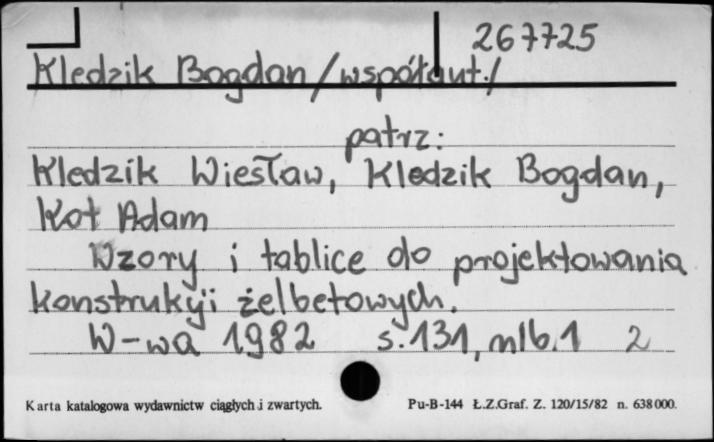 267725
Kledzik Bogdan /współaut./
patrz:
Kledzik Wiesław, Kledzik Bogdan,
Kot Adam
Wzory i tablice do projektowania
konstrukyji żelbetowych.
W-wa 1982 s.131, nlb.1 2
Karta katalogowa wydawnictw ciągłych i zwartych. Pu-B-144 Ł.Z.Graf. Z. 120/15/82 n. 638000.